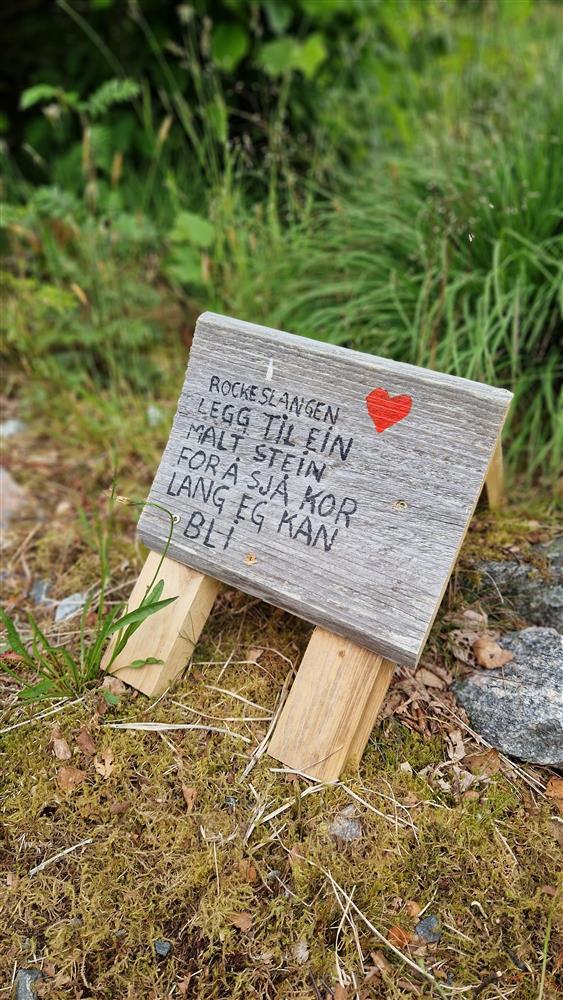 ROCKESLANGEN
LEGG TIL EIN
MALT STEIN
FOR Å SJÅ KOR
LANG EG KAN
BLI